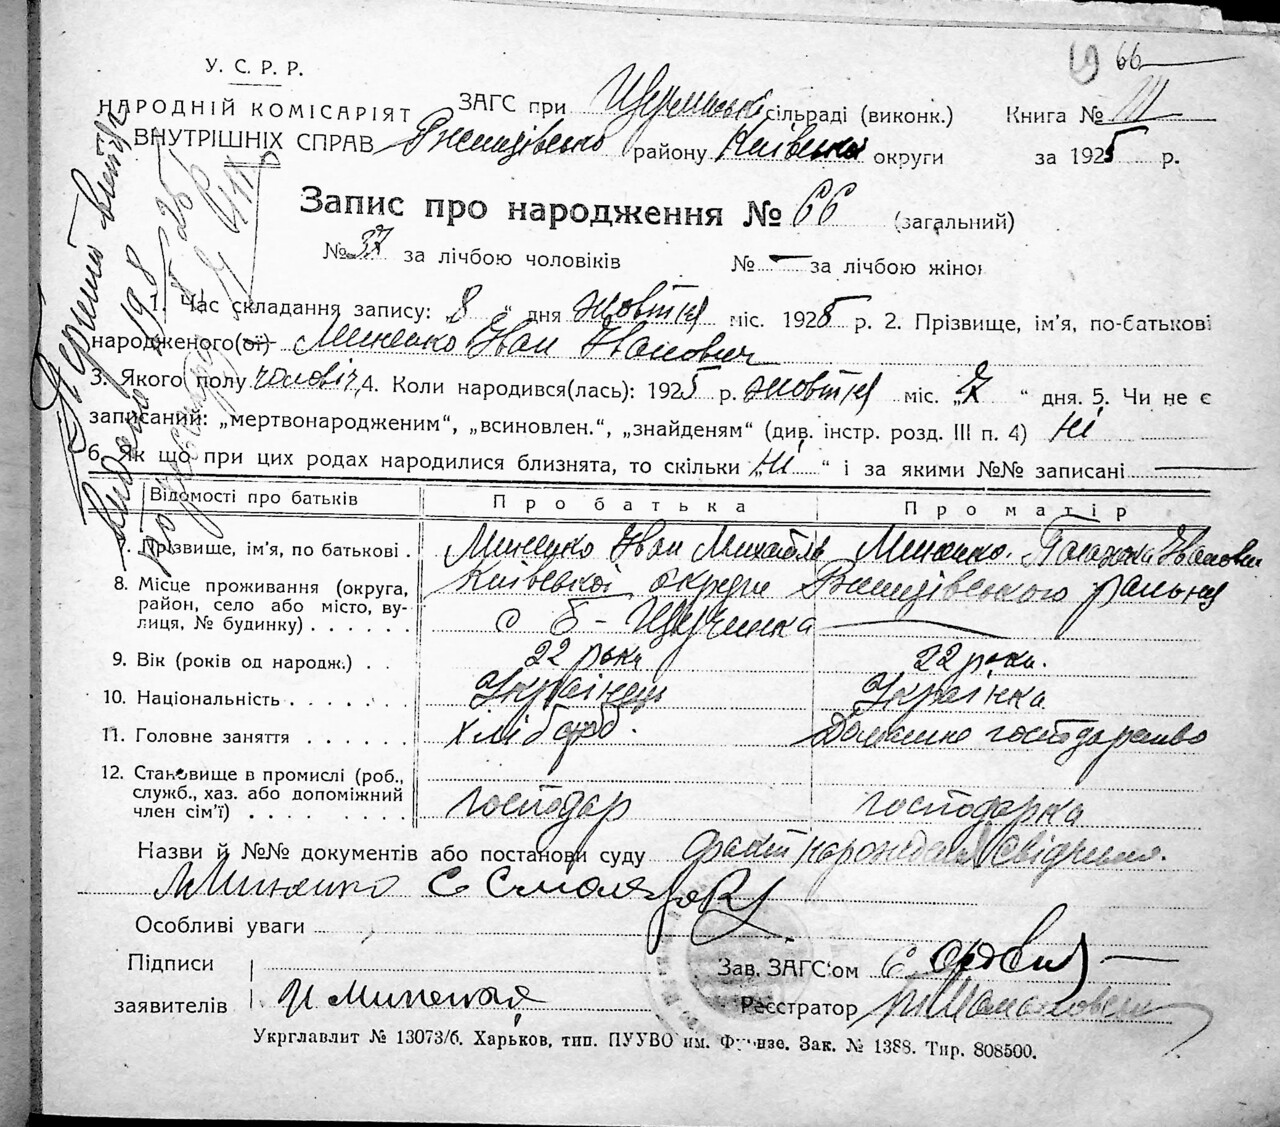 66
У. С. Р. Р.
НАРОДНІЙ КОМІСАРІЯТ
ВНУТРІШНІХ СПРАВ
ЗАГС при сільраді (виконк.) Книга № III
Ржищівсько району Київсько округи за 1925 р.
Запис про народження № 66 (загальний)
№ 37 за лічбою чоловіків № — за лічбою жінок
1. Час складання запису: „8“ дня жовтня міс. 1925 р. 2. Прізвище, ім'я, по-батькові
народженого(ої) Миненко Іван Іванович
3. Якого полу чоловіч. 4. Коли народився(лась): 1925 р. жовтня міс. „7“ дня. 5. Чи не є
записаний: „мертвонародженим“, „всиновлен.“, „знайденям“ (див. інстр. розд. III п. 4) Ні
6. Як що при цих родах народилися близнята, то скільки „Ні“ і за якими №№ записані
Відомості про батьків Про батька Про матір
7. Прізвище, ім'я, по батькові . Миненко Іван Михайлов Миненко Іванови
8. Місце проживання (округа, Київської округи Ржищівського району
район, село або місто, ву-
лиця, № будинку) . . . . . . с Б-Щучинка
9. Вік (років од народж.) . . 22 роки 22 роки.
10. Національність . . . . . . . Українець Українка
11. Головне заняття . . . . . . . хлібороб. Домашнє господарство
12. Становище в промислі (роб.,
служб., хаз. або допоміжний
член сім'ї) . . . . . . . господар господарка
Назви й №№ документів або постанови суду факт народження свідчили.
Миненко С
Особливі уваги
Підписи
заявителів И Миненко
Зав. ЗАГС'ом
Реєстратор
Укрглавлит № 13073/б. Харьков, тип. ПУУВО им. Фрунзе. Зак. № 1388. Тир. 808500.